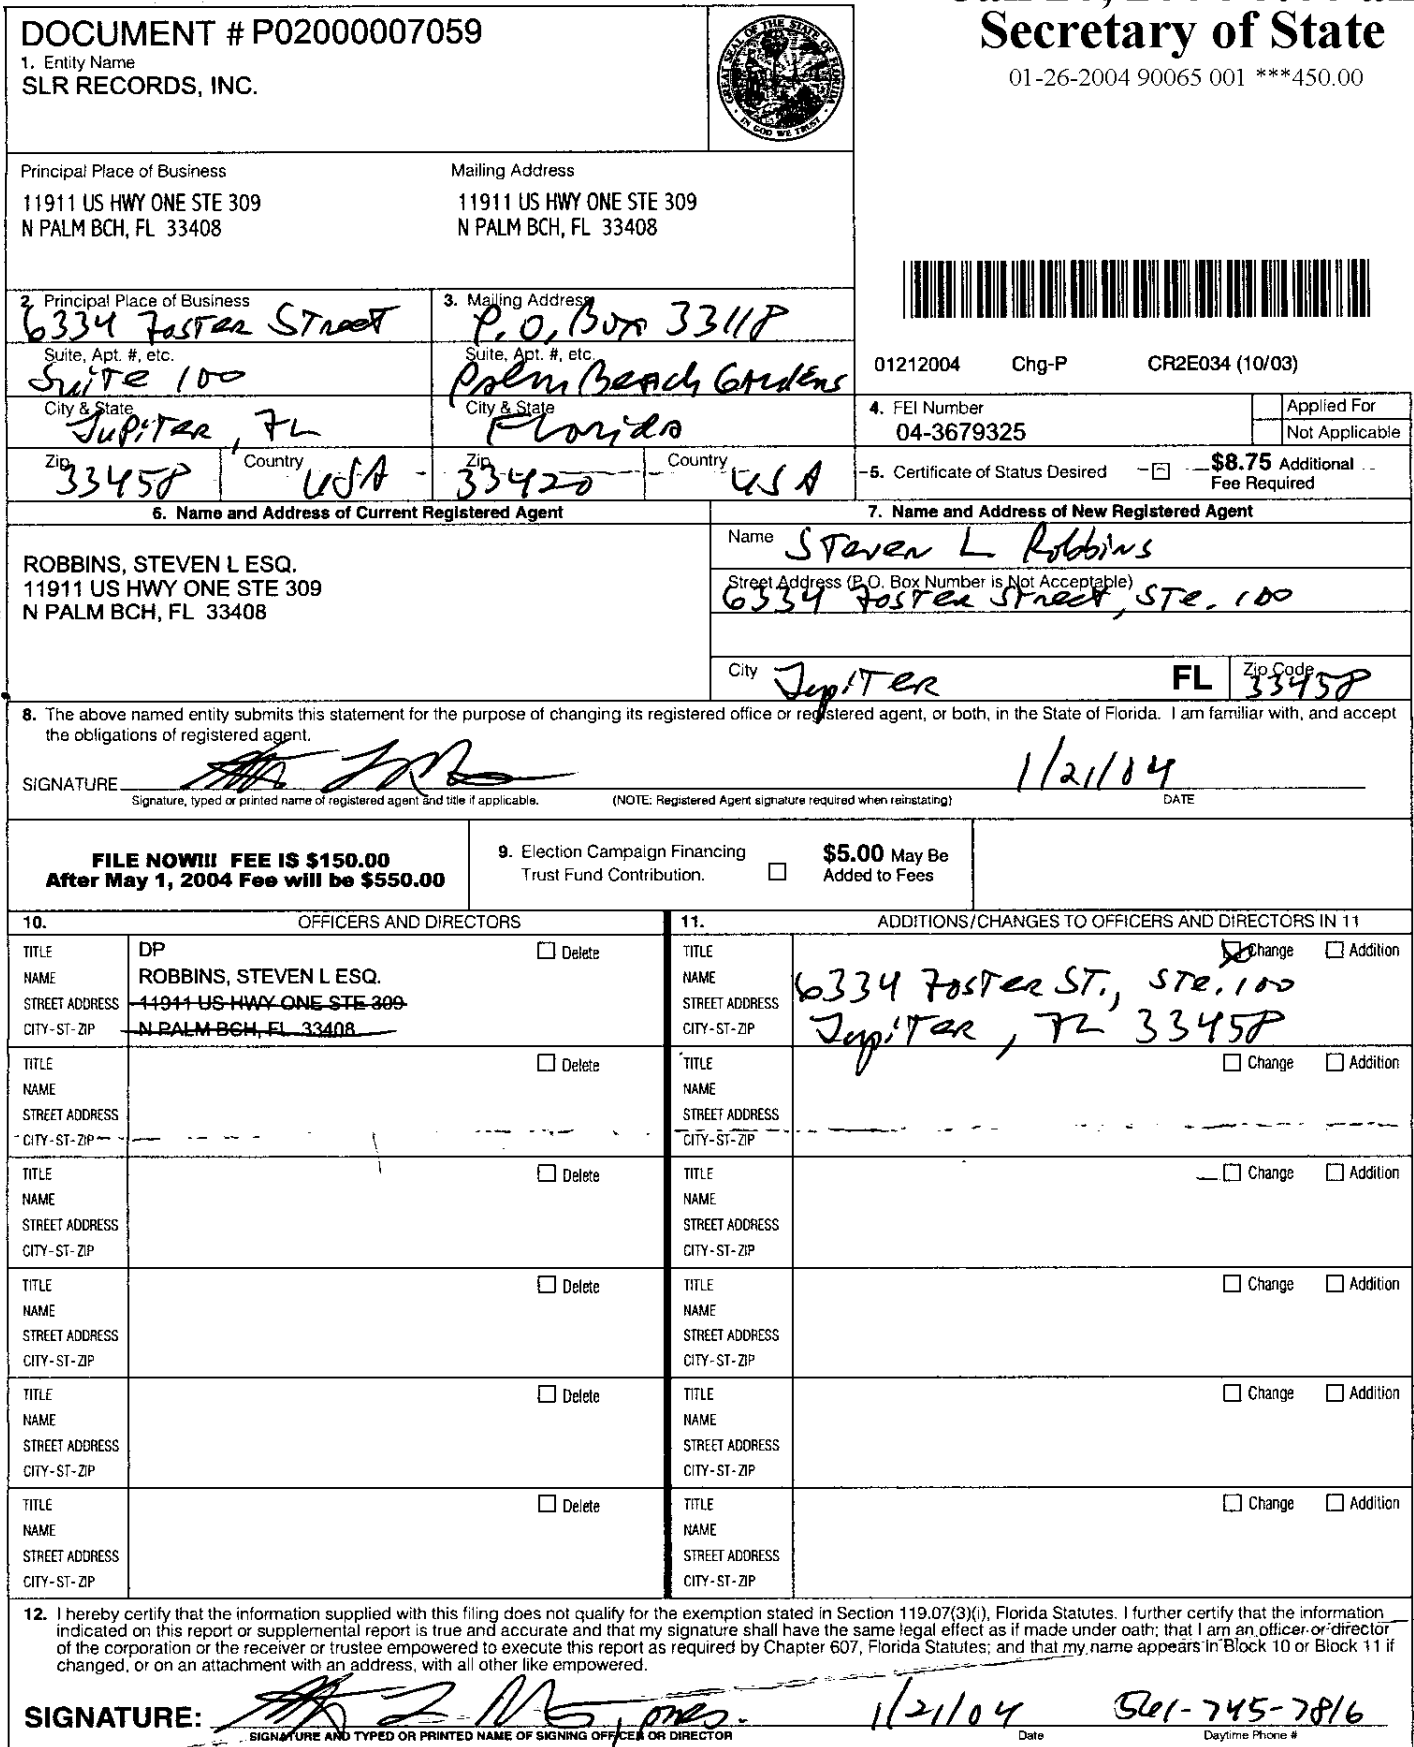 DOCUMENT # P02000007059
1. Entity Name
SLR RECORDS, INC.
GREAT SEAL OF THE STATE OF FLORIDA
IN GOD WE TRUST
Secretary of State
01-26-2004 90065 001 ***450.00
Principal Place of Business
11911 US HWY ONE STE 309
N PALM BCH, FL 33408
Mailing Address
11911 US HWY ONE STE 309
N PALM BCH, FL 33408
2. Principal Place of Business
6334 Foster Street
Suite, Apt. #, etc.
Suite 100
City & State
Jupiter, FL
Zip
33458
Country
USA
3. Mailing Address
P.O. Box 33118
Suite, Apt. #, etc.
Palm Beach Gardens
City & State
Florida
Zip
33420
Country
USA
01212004 Chg-P CR2E034 (10/03)
4. FEI Number
04-3679325
Applied For
Not Applicable
5. Certificate of Status Desired
$8.75 Additional
Fee Required
6. Name and Address of Current Registered Agent
ROBBINS, STEVEN L ESQ.
11911 US HWY ONE STE 309
N PALM BCH, FL 33408
7. Name and Address of New Registered Agent
Name Steven L Robbins
Street Address (P.O. Box Number is Not Acceptable)
6334 Foster Street, Ste. 100
City Jupiter FL Zip Code 33458
8. The above named entity submits this statement for the purpose of changing its registered office or registered agent, or both, in the State of Florida. I am familiar with, and accept
the obligations of registered agent.
SIGNATURE 1/21/04
Signature, typed or printed name of registered agent and title if applicable. (NOTE: Registered Agent signature required when reinstating) DATE
FILE NOW!!! FEE IS $150.00
After May 1, 2004 Fee will be $550.00
9. Election Campaign Financing
Trust Fund Contribution.
$5.00 May Be
Added to Fees
10. OFFICERS AND DIRECTORS
TITLE DP Delete
NAME ROBBINS, STEVEN L ESQ.
STREET ADDRESS 11911 US HWY ONE STE 309
CITY-ST-ZIP N PALM BCH, FL 33408
TITLE Delete
NAME
STREET ADDRESS
CITY-ST-ZIP
TITLE Delete
NAME
STREET ADDRESS
CITY-ST-ZIP
TITLE Delete
NAME
STREET ADDRESS
CITY-ST-ZIP
TITLE Delete
NAME
STREET ADDRESS
CITY-ST-ZIP
TITLE Delete
NAME
STREET ADDRESS
CITY-ST-ZIP
11. ADDITIONS/CHANGES TO OFFICERS AND DIRECTORS IN 11
TITLE Change Addition
NAME
STREET ADDRESS 6334 Foster St., Ste. 100
CITY-ST-ZIP Jupiter, FL 33458
TITLE Change Addition
NAME
STREET ADDRESS
CITY-ST-ZIP
TITLE Change Addition
NAME
STREET ADDRESS
CITY-ST-ZIP
TITLE Change Addition
NAME
STREET ADDRESS
CITY-ST-ZIP
TITLE Change Addition
NAME
STREET ADDRESS
CITY-ST-ZIP
TITLE Change Addition
NAME
STREET ADDRESS
CITY-ST-ZIP
12. I hereby certify that the information supplied with this filing does not qualify for the exemption stated in Section 119.07(3)(i), Florida Statutes. I further certify that the information
indicated on this report or supplemental report is true and accurate and that my signature shall have the same legal effect as if made under oath; that I am an officer or director
of the corporation or the receiver or trustee empowered to execute this report as required by Chapter 607, Florida Statutes; and that my name appears in Block 10 or Block 11 if
changed, or on an attachment with an address, with all other like empowered.
SIGNATURE: , pres. 1/21/04 561-745-7816
SIGNATURE AND TYPED OR PRINTED NAME OF SIGNING OFFICER OR DIRECTOR Date Daytime Phone #